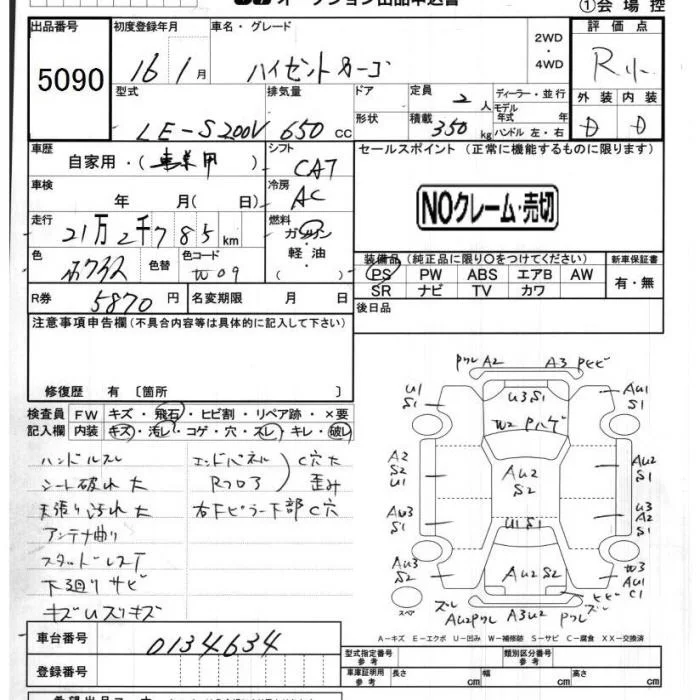 オークション出品申込書
①会場控
出品番号
5090
初度登録年月
16年1月
車名・グレード
ハイゼットカーゴ
2WD
・
4WD
評価点
R
型式
LE-S200V
排気量
650 cc
ドア
形状
定員
2人
積載
350kg
ディーラー・並行
モデル
年式 年
ハンドル 左・右
外装
D
内装
D
車歴
自家用・( )
シフト
CAT
セールスポイント (正常に機能するものに限ります)
NOクレーム・売切
車検
年 月( 日)
冷房
AC
走行
21万2千785km
燃料
ガソリン
軽・油
( )
色
色替
色コード
W09
装備品 (純正品に限り○をつけてください)
PS PW ABS エアB AW
SR ナビ TV カワ
新車保証書
有・無
R券
5870円
名変期限 月 日
後日品
注意事項申告欄(不具合内容等は具体的に記入して下さい)
修復歴 有 〔箇所 〕
検査員
記入欄
FW キズ・飛石・ヒビ割・リペア跡・×要
内装 キズ・汚レ・コゲ・穴・スレ・キレ・破レ
ハンドルスレ
シート破れ大
天張り汚れ大
アンテナ曲り
スタッドレスT
下廻りサビ
キズUズリキズ
エンドパネル
Rフロア
C穴大
歪み
右下ピラー下部C穴
PワレA2
A3Pヒビ
U1
S1
U3S1
AU1
S1
W2Pハゲ
A2
S2
U1
AU2
S2
AU2
S1
AU3
S1
U3
A2
S1
U1S1
AU3
S2
AU2S2
W3
AU1
C1
ヒビ
スペア
ズレ
AU2Pワレ
A3U2
Pワレ
ズレ
A-キズ E-エクボ U-凹み W-補修跡 S-サビ C-腐食 XX-交換済
車台番号
0134634
登録番号
型式指定番号
参考
類別区分番号
参考
車庫証明用
参考
長さ cm
幅 cm
高さ cm